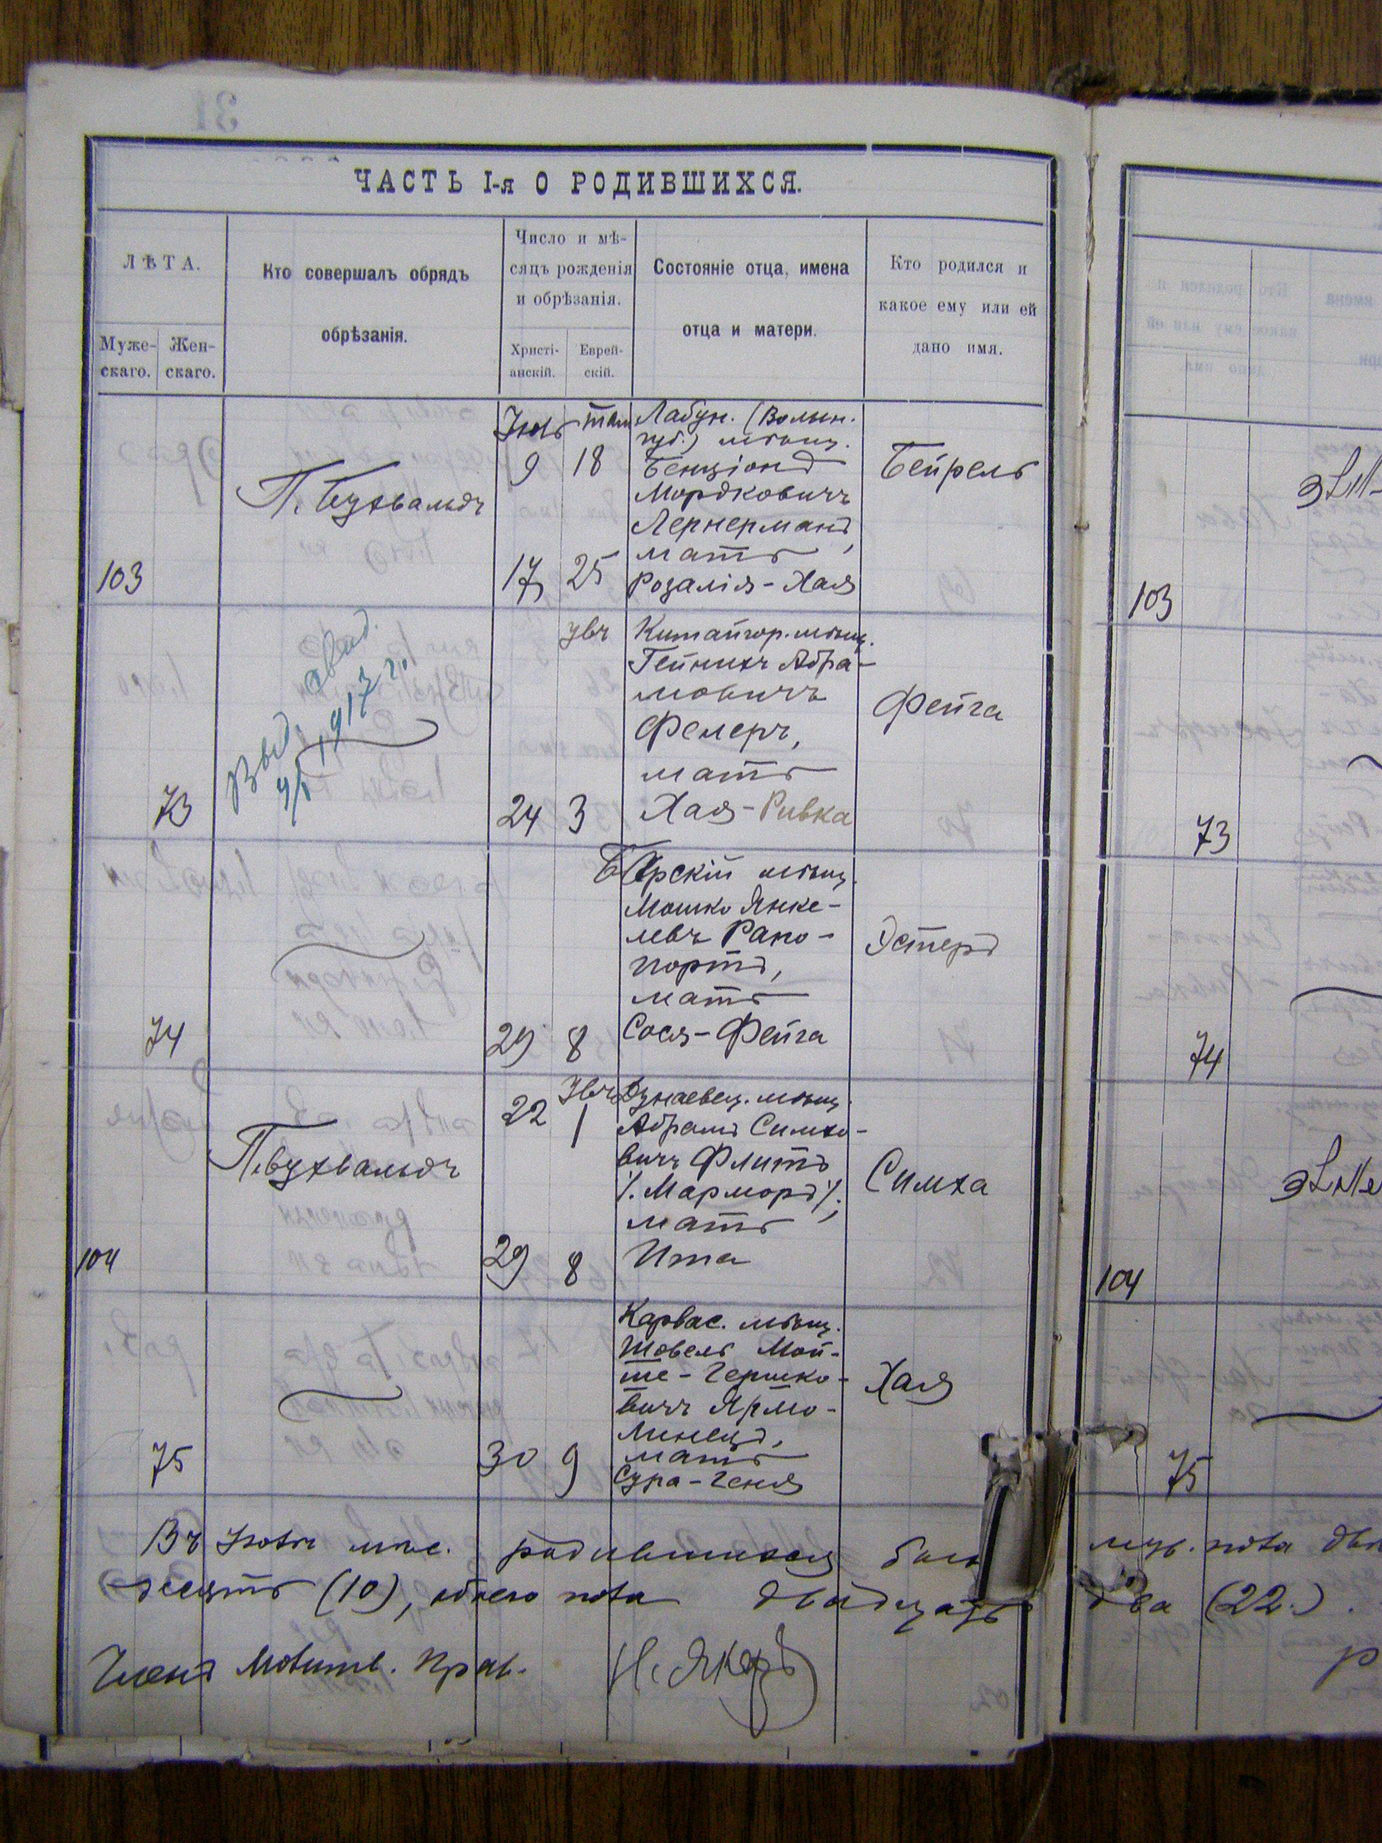 ЧАСТЬ I-я О РОДИВШИХСЯ.
ЛѢТА.
Муже-
скаго.
Жен-
скаго.
Кто совершалъ обрядъ
обрѣзанія.
Число и мѣ-
сяцъ рожденія
и обрѣзанія.
Христі-
анскій.
Еврей-
скій.
Состояніе отца, имена
отца и матери.
Кто родился и
какое ему или ей
дано имя.
103
П. Бухвальдъ
Іюль
9
17
Там
18
25
Лабун. (Волын.
губ.) мѣщ.
Бенціонъ
Мордковичъ
Лернерманъ,
мать
Розалія-Хая
Бейрель
73
Выд.
1917 г.
24
Увъ
3
Китайгор. мѣщ.
Гейнихъ Абра-
мовичъ
Фелеръ,
мать
Хая-Ривка
Фейга
74
29
8
Барскій мѣщ.
Мошко Янке-
левъ Рапо-
портъ,
мать
Сося-Фейга
Эстеръ
104
П. Бухвальдъ
22
29
Увъ
1
8
Дунаевец. мѣщ.
Абрамъ Симхо-
вичъ Флитъ
/. Марморъ /.,
мать
Ита
Симха
75
30
9
Карвас. мѣщ.
Шовель Мой-
ше-Гершко-
вичъ Ярмо-
линецъ,
мать
Сура-Геня
Хая
103
73
74
104
75
Въ Іюлѣ мѣс. родившихся было муж. пола два
десять (10), обоего пола двадцать два (22.).
Членъ Молитв. Прав.